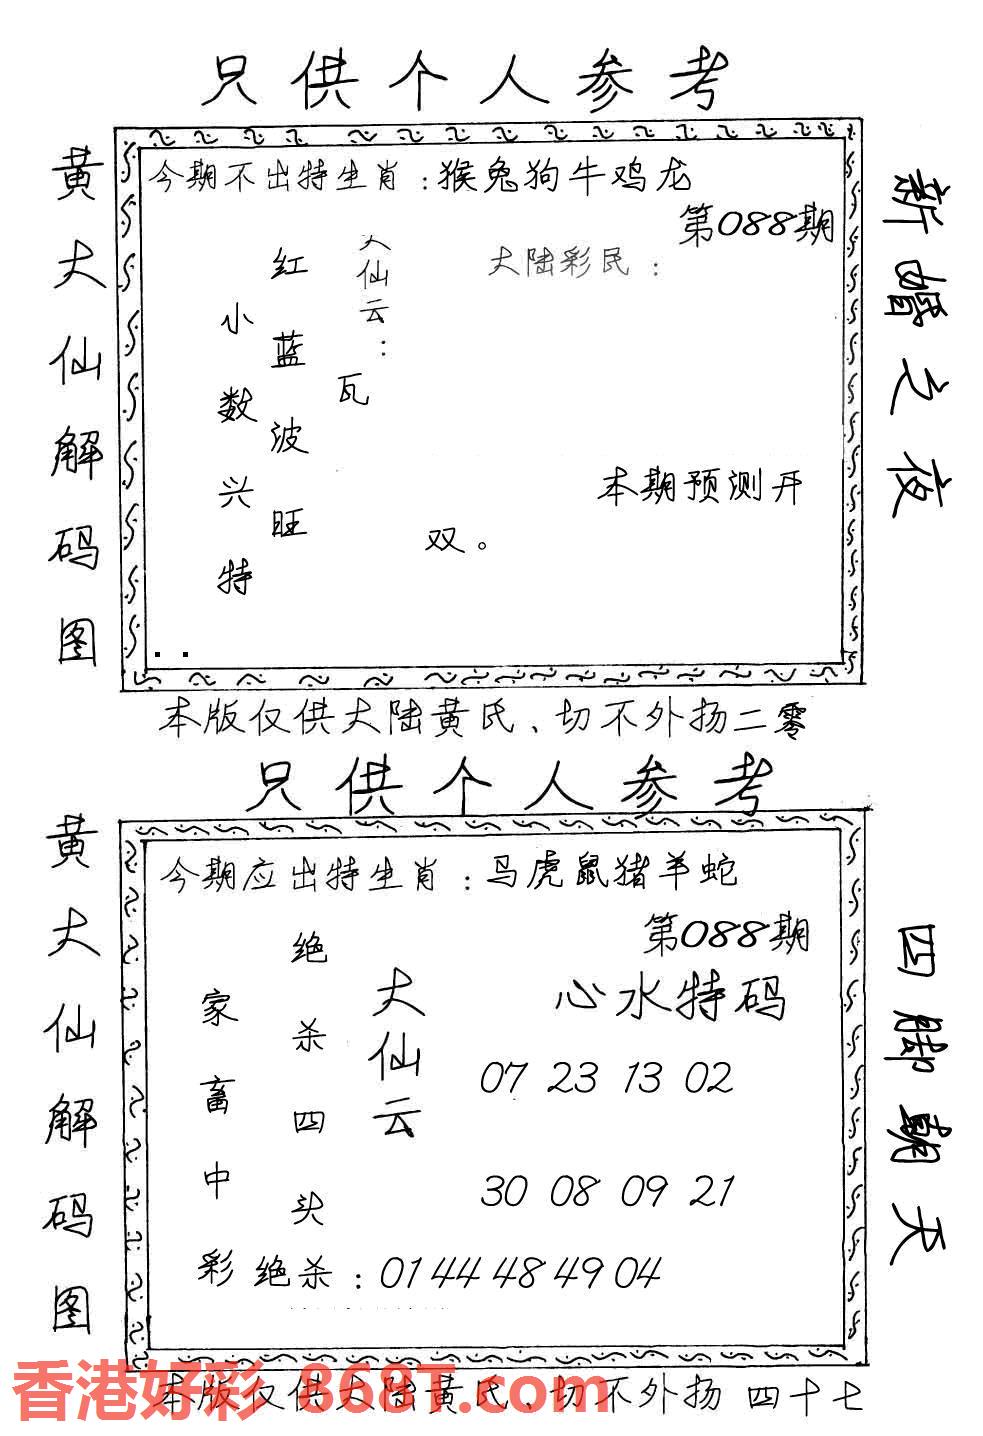 只供个人参考
黄大仙解码图
今期不出特生肖：猴兔狗牛鸡龙
第088期
大陆彩民：
大仙云：
瓦
红蓝波旺
小数兴特
本期预测开
双。
新婚之夜
本版仅供大陆黄氏、切不外扬二零
只供个人参考
黄大仙解码图
今期应出特生肖：马虎鼠猪羊蛇
第088期
心水特码
大仙云
绝杀四头
家畜中彩
07 23 13 02
30 08 09 21
绝杀：01 44 48 49 04
四脚朝天
本版仅供大陆黄氏、切不外扬 四十七
香港好彩 868T.com